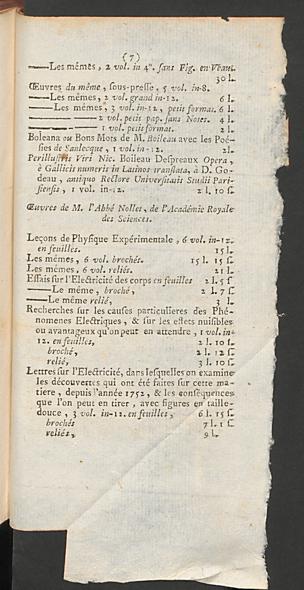 (7)
——Les mêmes, 2 vol. in 4°. sans Fig. en Veau.
30 l.
Œuvres du même, sous-presse, 5 vol. in-8.
——Les mêmes, 2 vol. grand in-12. 6 l.
——Les mêmes, 3 vol. in-12, petit format. 6 l.
—— —— —— 2 vol. petit pap. sans Notes. 4 l.
—— —— —— 1 vol. petit format. 2 l.
Boleana ou Bons Mots de M. Boileau avec les Poé-
sies de Sanlecque, 1 vol. in-12. 2 l.
Perillustris Viri Nic. Boileau Despreaux Opera,
è Gallicis numeris in Latinos translata, à D. Go-
deau, antiquo Rectore Universitatis Studii Pari-
siensis, 1 vol. in-12. 2 l. 10 s.
Œuvres de M. l'Abbé Nollet, de l'Académie Royale
des Sciences.
Leçons de Physique Expérimentale, 6 vol. in-12.
en feuilles. 15 l.
Les mêmes, 6 vol. brochés. 15 l. 15 s.
Les mêmes, 6 vol. reliés. 21 l.
Essais sur l'Electricité des corps en feuilles 2 l. 5 s.
——Le même, broché, 2 l. 7 s.
——Le même relié, 3 l.
Recherches sur les causes particulieres des Phé-
nomenes Electriques, & sur les effets nuisibles
ou avantageux qu'on peut en attendre, 1 vol. in-
12. en feuilles, 2 l. 10 s.
broché, 2 l. 12 s.
relié, 3 l. 10 s.
Lettres sur l'Electricité, dans lesquelles on examine
les découvertes qui ont été faites sur cette ma-
tiere, depuis l'année 1752, & les conséquences
que l'on peut en tirer, avec figures en taille-
douce, 3 vol. in-12. en feuilles, 6 l. 15 s.
brochés 7 l. 1 s.
reliés, 9 l.